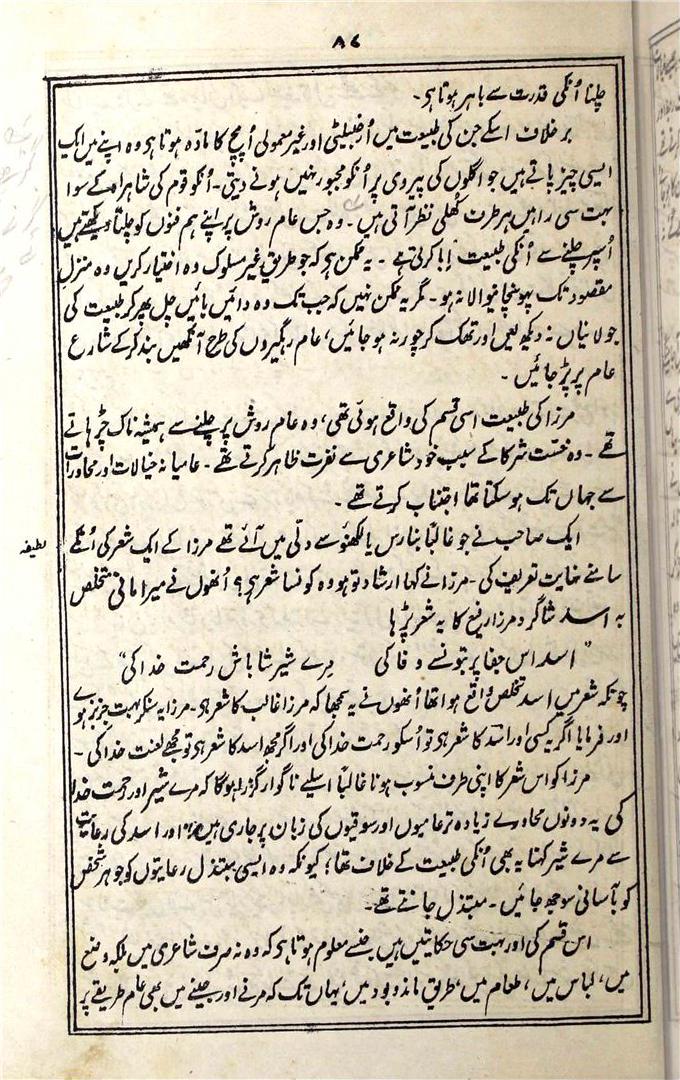 ۸۶
چلنا اُنکی قدرت سے باہر ہوتا ہی۔
برخلاف اسکے جن کی طبیعت میں اُرجنیلٹی اور غیر معمولی اُپج کا مادّہ ہوتا ہی وہ اپنے میں ایک
ایسی چیز پاتے ہیں جو اگلوں کی پیروی پر اُنکو مجبور نہیں ہونے دیتی۔ اُنکو قوم کی شاہراہ کے سوا
بہت سی راہیں ہر طرف کھُلی نظر آتی ہیں۔ وہ جس عام روش پر اپنے ہم فنوں کو چلتا دیکھتے ہیں
اُسپر چلنے سے اُنکی طبیعت اِبا کرتی ہے۔ یہ ممکن ہی کہ جو طریق غیر مسلوک وہ اختیار کریں وہ منزلِ
مقصود تک پہونچانیوالا نہ ہو۔ مگر یہ ممکن نہیں کہ جب تک وہ دائیں بائیں چل پھر کر طبیعت کی
جولانیاں نہ دیکھ لیں اور تھک کر چور نہ ہو جائیں، عام رہگیروں کی طرح آنکھیں بند کر کے شارع
عام پر پڑ جائیں۔
مرزا کی طبیعت اسی قسم کی واقع ہوئی تھی، وہ عام روش پر چلنے سے ہمیشہ ناک چڑہاتے
تھے۔ وہ خسّت شرکا کے سبب خود شاعری سے نفرت ظاہر کرتے تھے۔ عامیانہ خیالات اور محاورات
سے جہاں تک ہو سکتا تھا اجتناب کرتے تھے۔
لطیفہ
ایک صاحب نے جو غالباً بنارس یا لکھنؤ سے دلّی میں آئے تھے مرزا کے ایک شعر کی اُنکے
سامنے نہایت تعریف کی۔ مرزا نے کہا ارشاد تو ہو وہ کونسا شعر ہی؟ اُنھوں نے میر امانی متخلص
بہ اسد شاگرد مرزا رفیع کا یہ شعر پڑہا
"اسد اس جفا پر بتوں نے وفا کی مرے شیر شاباش رحمت خدا کی"
چونکہ شعر میں اسد تخلص واقع ہوا تھا اُنھوں نے یہ سمجھا کہ مرزا غالب کا شعر ہی۔ مرزا یہ سنکر بہت جزبز ہوے
اور فرمایا اگر یہ کسی اور اسد کا شعر ہی تو اُسکو رحمت خدا کی اور اگر مجھ اسد کا شعر ہی تو مجھے لعنت خدا کی۔
مرزا کو اس شعر کا اپنی طرف منسوب ہونا غالباً اسلیے ناگوار گزرا ہوگا کہ مرے شیر اور رحمت خدا
کی یہ دونوں محاورے زیادہ تر عامیوں اور سوقیوں کی زبان پر جاری ہیں اور اسد کی رعایت
سے مرے شیر کہنا یہ بھی اُنکی طبیعت کے خلاف تھا؛ کیونکہ وہ ایسی مبتذل رعایتوں کو جو ہر شخص
کو بآسانی سوجھ جائیں۔ مبتذل جانتے تھے۔
اس قسم کی اور بہت سی حکایتیں ہیں جنسے معلوم ہوتا ہی کہ وہ نہ صرف شاعری میں بلکہ وضع
میں، لباس میں، طعام میں، طریق ماند و بود میں، یہاں تک کہ مرنے اور جینے میں بھی عام طریقے پر